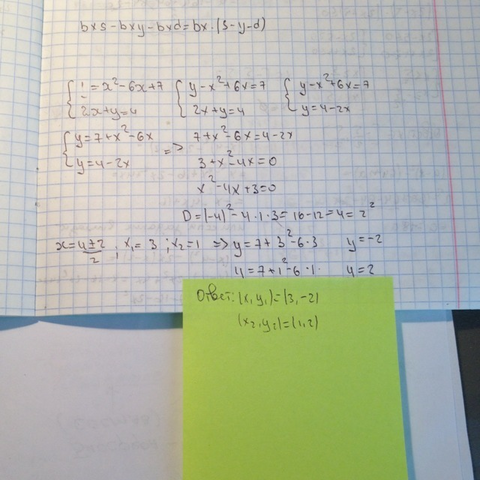 bxs-bxy-bxd=bx·(s-y-d)
{ y=x²-6x+7 { y-x²+6x=7 { y-x²+6x=7
{ 2x+y=4 { 2x+y=4 { y=4-2x
{ y=7+x²-6x => 7+x²-6x=4-2x
{ y=4-2x 3+x²-4x=0
x²-4x+3=0
D=(-4)²-4·1·3=16-12=4=2²
x=4±2/2 ; x₁=3 ; x₂=1 => y=7+3²-6·3 y=-2
y=7+1²-6·1 y=2
Ответ: (x,y₁)=(3,-2)
(x₂,y₂)=(1,2)